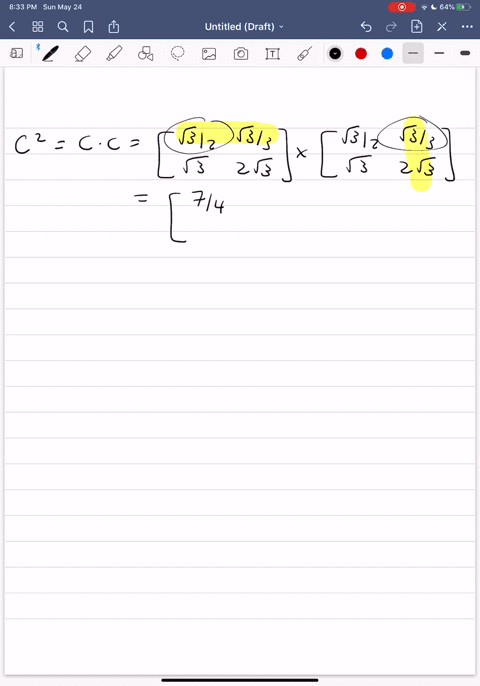 8:33 PM Sun May 24 64%
Untitled (Draft)
C² = C · C = [ √3/2 √3/3 ] × [ √3/2 √3/3 ]
√3 2√3 √3 2√3
= [ 7/4